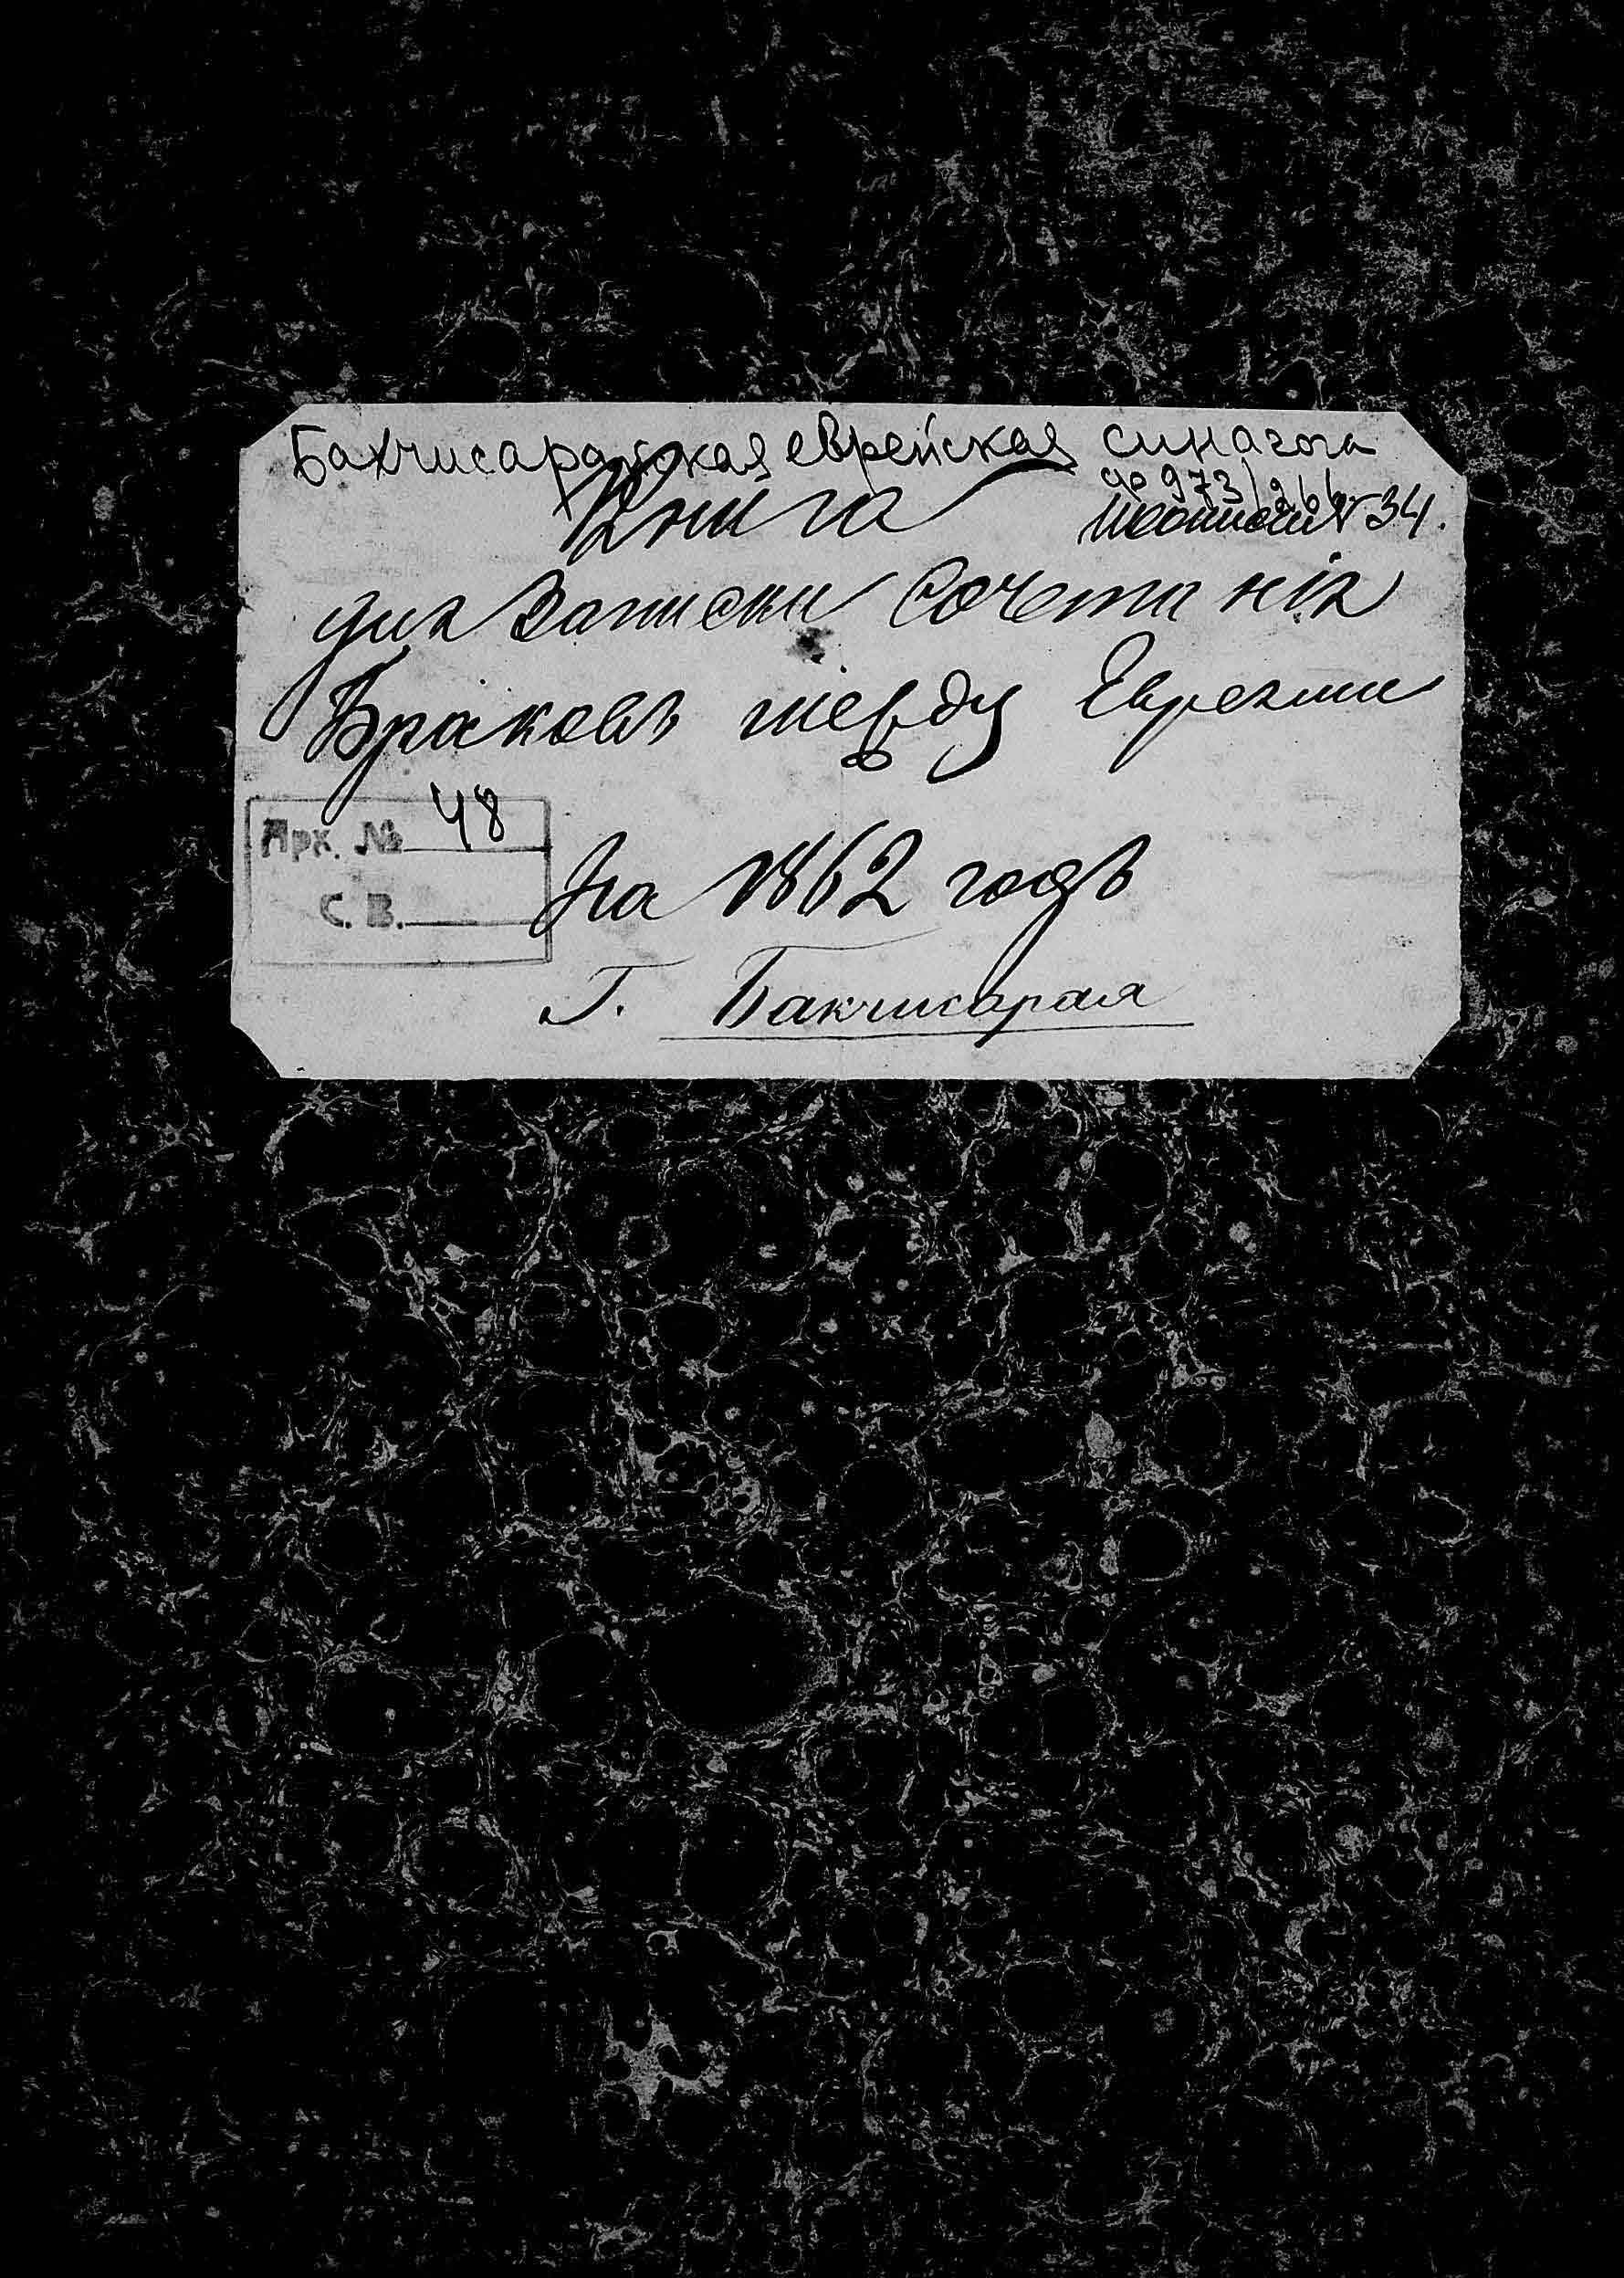 Бахчисарайская еврейская синагога
Книга
ф 973
№ 34.
для записки Сочетанія
Браковъ между Евреями
48
Арх. №
На 1862 годъ
С. В.
Г. Бакчисарая